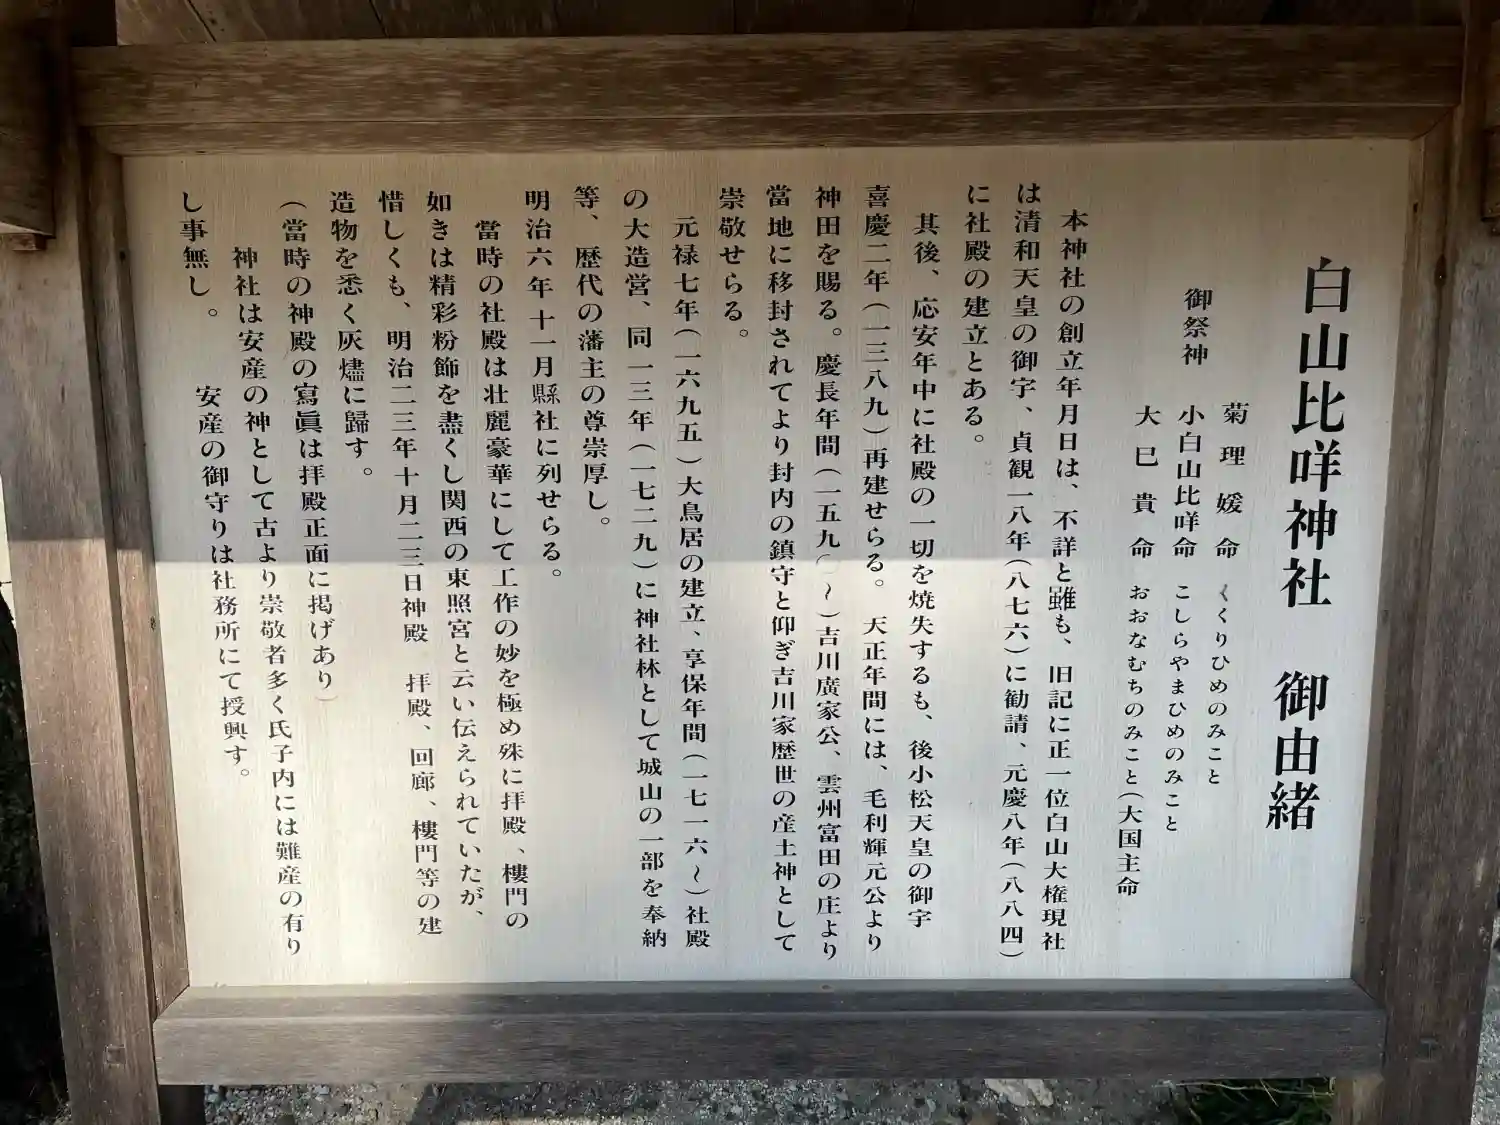 白山比咩神社　御由緒
御祭神
菊理媛命　くくりひめのみこと
小白山比咩命　こしらやまひめのみこと
大巳貴命　おおなむちのみこと(大国主命
本神社の創立年月日は、不詳と雖も、旧記に正一位白山大権現社
は清和天皇の御宇、貞観一八年(八七六)に勧請、元慶八年(八八四)
に社殿の建立とある。
其後、応安年中に社殿の一切を焼失するも、後小松天皇の御宇
喜慶二年(一三八九)再建せらる。　天正年間には、毛利輝元公より
神田を賜る。慶長年間(一五九　～)吉川廣家公、雲州富田の庄より
當地に移封されてより封内の鎮守と仰ぎ吉川家歴世の産土神として
崇敬せらる。
元禄七年(一六九五)大鳥居の建立、享保年間(一七一六～)社殿
の大造営、同一三年(一七二九)に神社林として城山の一部を奉納
等、歴代の藩主の尊崇厚し。
明治六年十一月縣社に列せらる。
當時の社殿は壮麗豪華にして工作の妙を極め殊に拝殿、樓門の
如きは精彩粉飾を盡くし関西の東照宮と云い伝えられていたが、
惜しくも、明治二三年十月二三日神殿　拝殿、回廊、樓門等の建
造物を悉く灰燼に歸す。
(當時の神殿の寫眞は拝殿正面に掲げあり)
神社は安産の神として古より崇敬者多く氏子内には難産の有り
し事無し。　安産の御守りは社務所にて授興す。